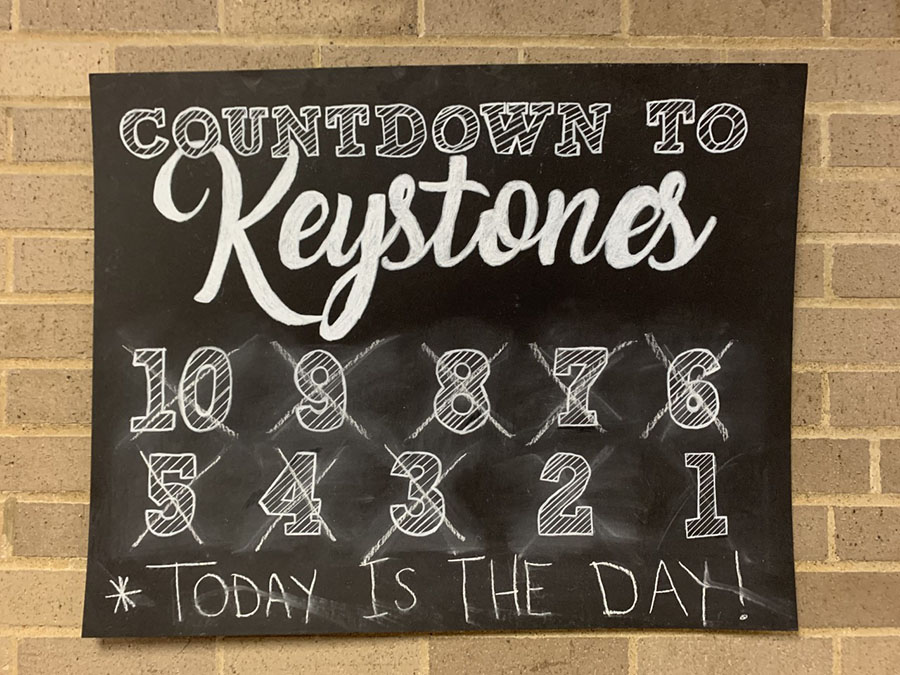 COUNTDOWN TO
Keystones
10 9 8 7 6
5 4 3 2 1
* TODAY IS THE DAY!